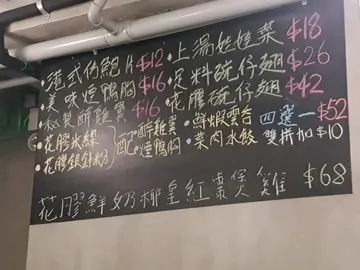 ·港式仿鮑片 $12 ·上湯娃娃菜 $18
·美味煙鴨胸 $16 ·足料碗仔翅 $26
·私製醉雞翼 $16 ·花膠碗仔翅 $42
·花膠米線
·花膠銀針粉
配
·醉雞翼
·煙鴨胸
·鮮蝦雲吞
·菜肉水餃
四選一 $52
雙拼加$10
花膠鮮奶椰皇紅棗煲雞 $68